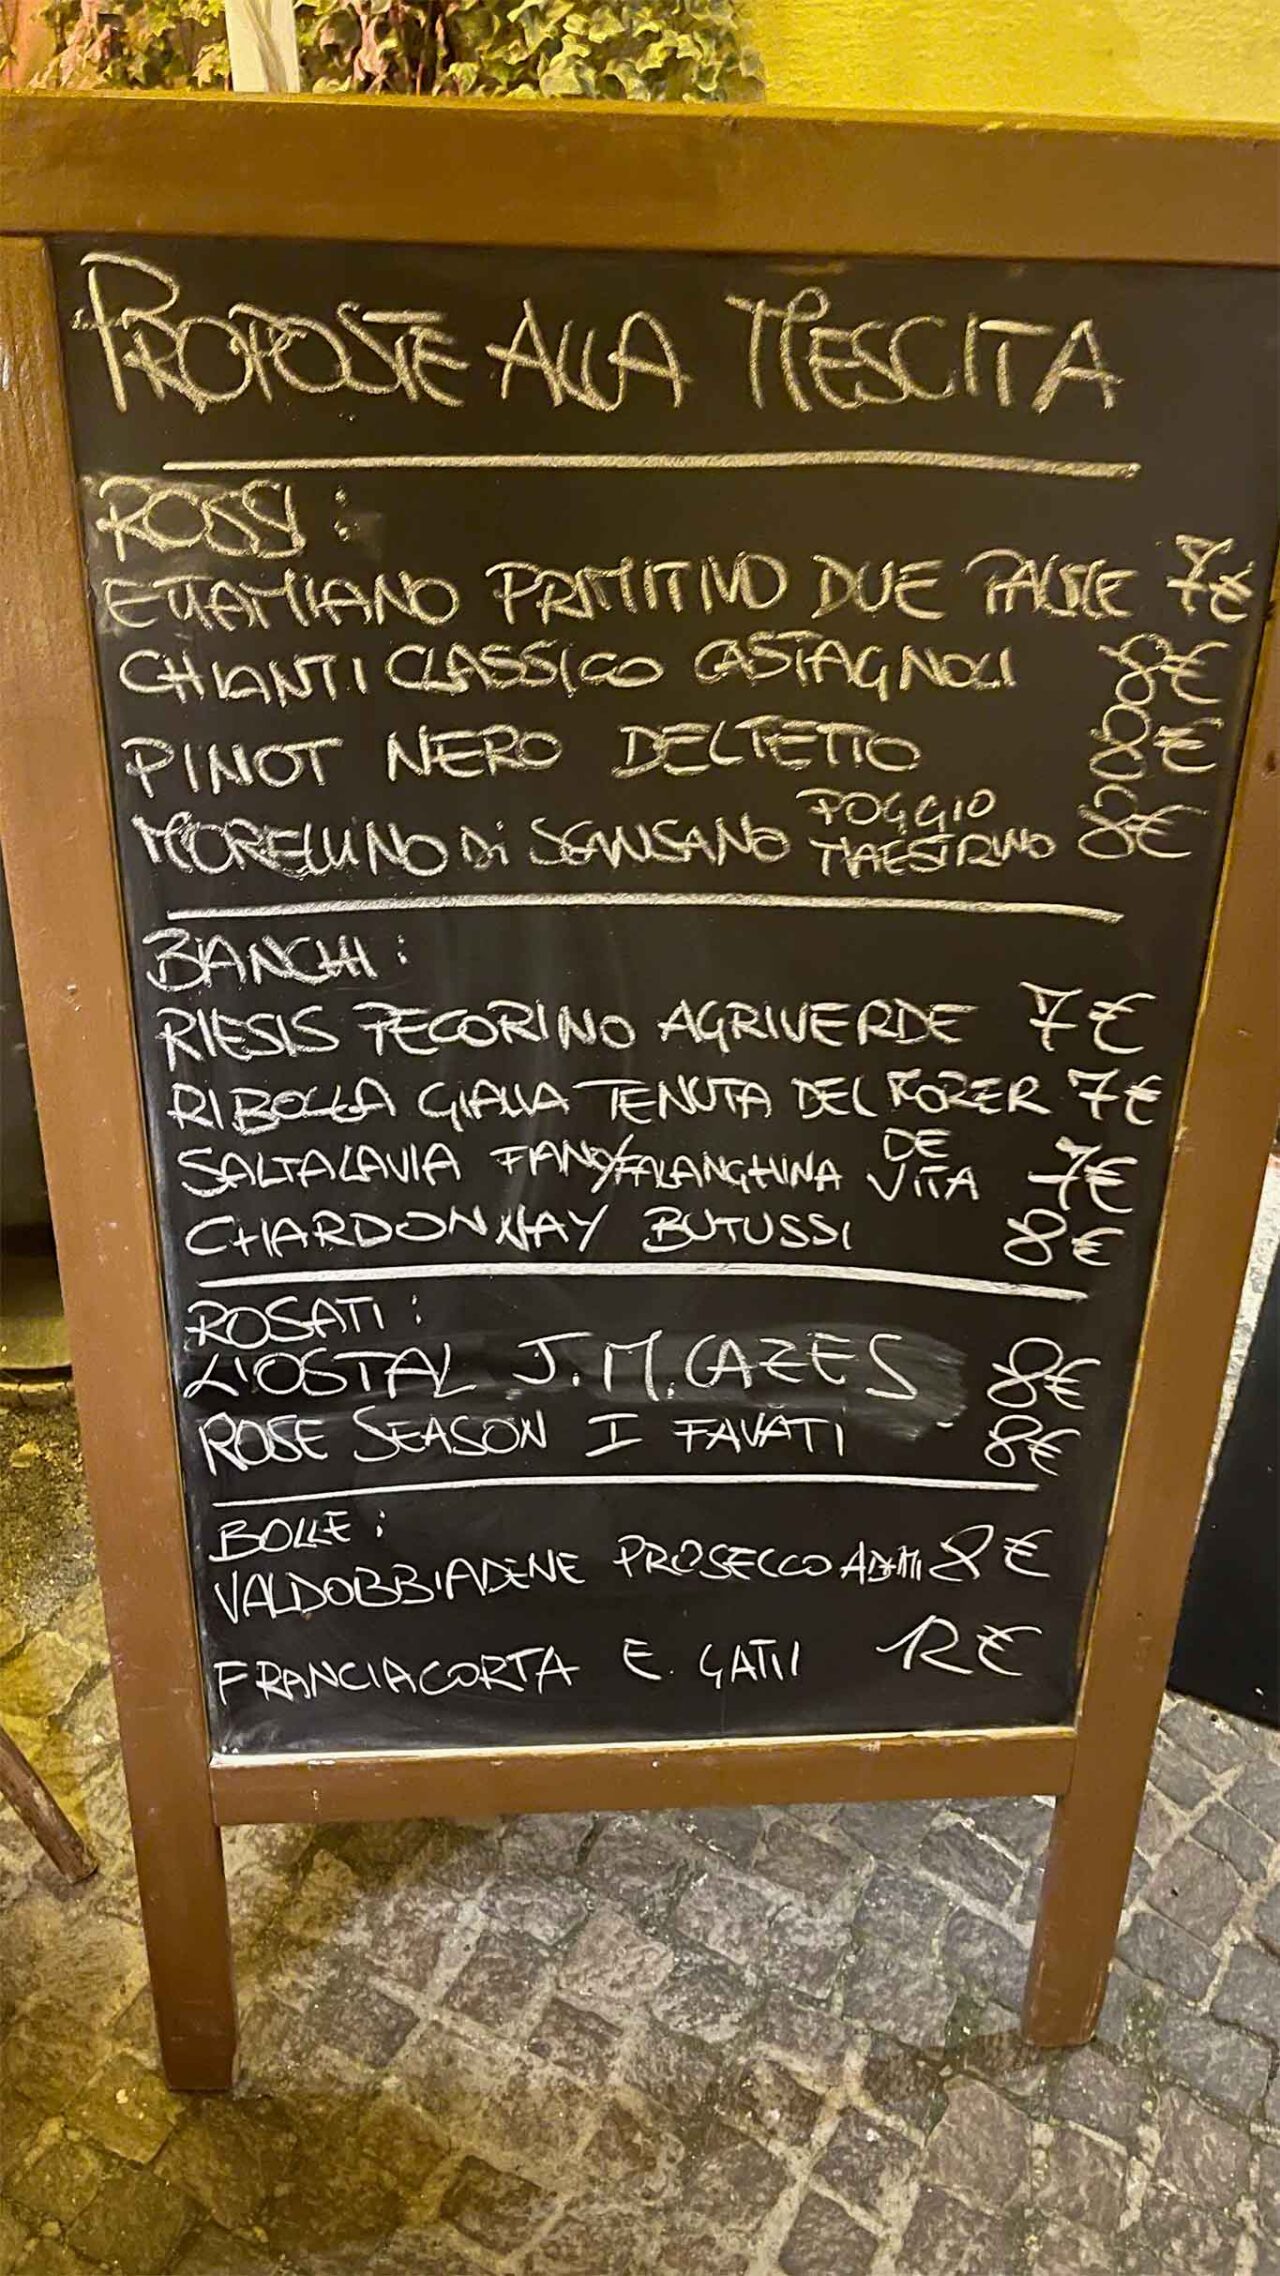 PROPOSTE ALLA MESCITA
ROSSI:
ETTAMIANO PRIMITIVO DUE PALME 7€
CHIANTI CLASSICO CASTAGNOLI 8€
PINOT NERO DELTETTO 8€
MORELLINO Di SCANSANO POGGIO MAESTRINO 8€
BIANCHI:
RIESIS PECORINO AGRIVERDE 7€
RIBOLLA GIALLA TENUTA DEL MORER 7€
SALTALAVIA FIANO/FALANGHINA DE VITA 7€
CHARDONNAY BUTUSSI 8€
ROSATI:
L'OSTAL J.M.CAZES 8€
ROSE SEASON I FAVATI 8€
BOLLE:
VALDOBBIADENE PROSECCO ADAMI 8€
FRANCIACORTA E. GATTI 12€